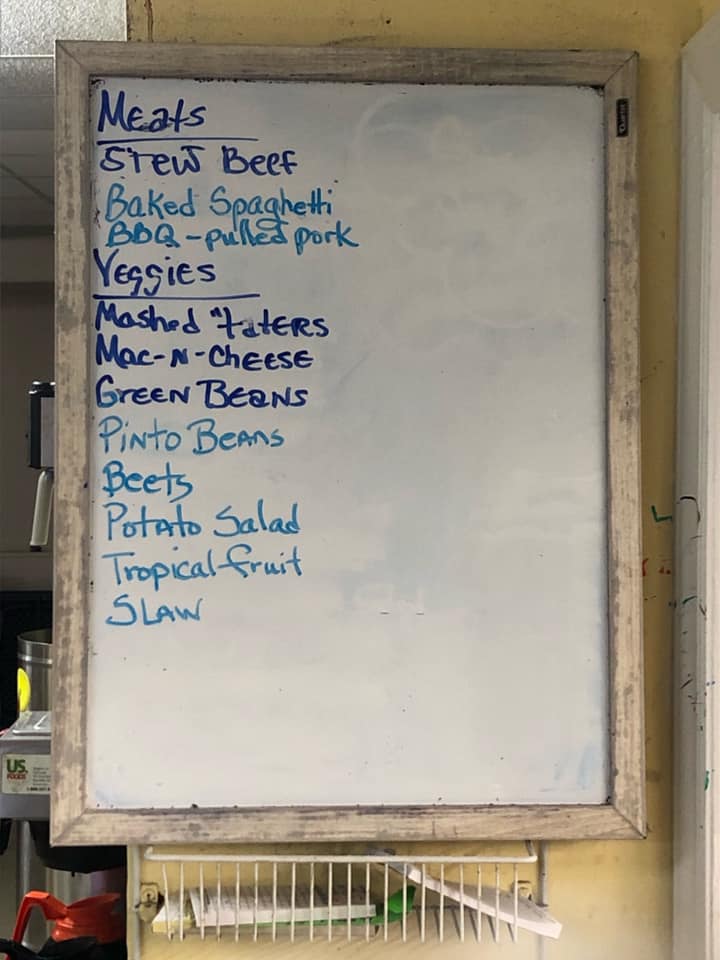 Meats
Stew Beef
Baked Spaghetti
BBQ - pulled pork
Veggies
Mashed "taters
Mac-N-Cheese
Green Beans
Pinto Beans
Beets
Potato Salad
Tropical fruit
Slaw
US.
FOODS